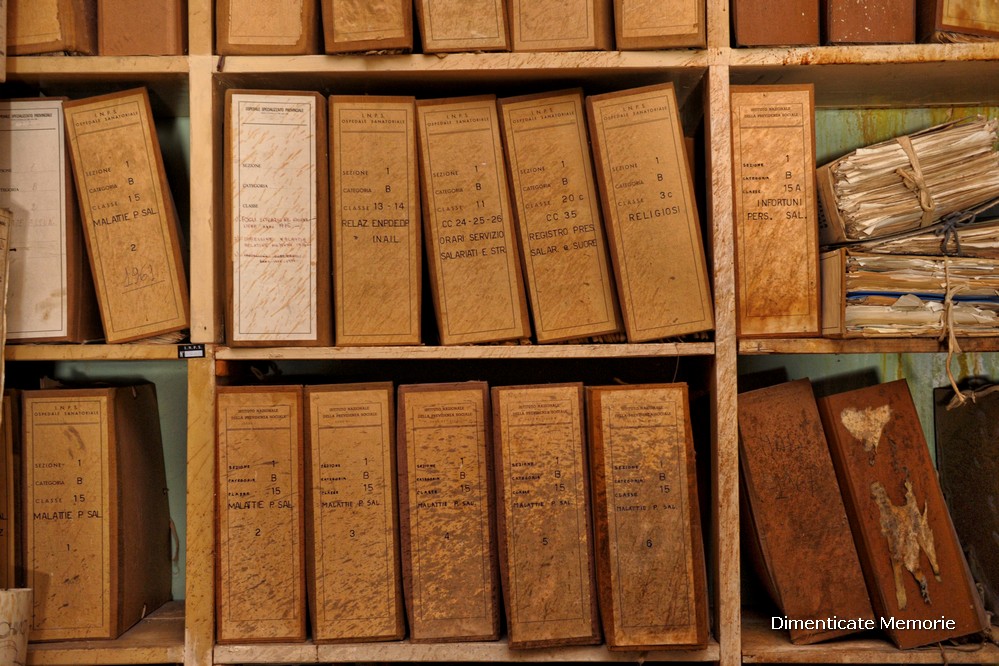 I.N.P.S.
OSPEDALE SANATORIALE
SEZIONE 1
CATEGORIA B
CLASSE 15
MALATTIE P. SAL.
2
1967
OSPEDALE SPECIALIZZATO PROVINCIALE
SEZIONE
CATEGORIA
CLASSE
I.N.P.S.
OSPEDALE SANATORIALE
SEZIONE 1
CATEGORIA B
CLASSE 13-14
RELAZ. ENPDEDP
" INAIL
I.N.P.S.
OSPEDALE SANATORIALE
SEZIONE 1
CATEGORIA B
CLASSE 11
CC 24-25-26
ORARI SERVIZIO
SALARIATI E STR.
I.N.P.S.
OSPEDALE SANATORIALE
SEZIONE 1
CATEGORIA B
CLASSE 20 c
CC 35
REGISTRO PRES.
SALAR. e SUORE
I.N.P.S.
OSPEDALE SANATORIALE
SEZIONE 1
CATEGORIA B
CLASSE 3c
RELIGIOSI
ISTITUTO NAZIONALE
DELLA PREVIDENZA SOCIALE
SEZIONE 1
CATEGORIA B
CLASSE 15A
INFORTUNI
PERS. SAL.
I.N.P.S.
I.N.P.S.
OSPEDALE SANATORIALE
SEZIONE 1
CATEGORIA B
CLASSE 15
MALATTIE P. SAL.
1
ISTITUTO NAZIONALE
DELLA PREVIDENZA SOCIALE
SEZIONE 1
CATEGORIA B
CLASSE 15
MALATTIE P. SAL.
2
ISTITUTO NAZIONALE
DELLA PREVIDENZA SOCIALE
SEZIONE 1
CATEGORIA B
CLASSE 15
MALATTIE P. SAL.
3
ISTITUTO NAZIONALE
DELLA PREVIDENZA SOCIALE
SEZIONE 1
CATEGORIA B
CLASSE 15
MALATTIE P. SAL.
4
ISTITUTO NAZIONALE
DELLA PREVIDENZA SOCIALE
SEZIONE 1
CATEGORIA B
CLASSE 15
MALATTIE P. SAL.
5
ISTITUTO NAZIONALE
DELLA PREVIDENZA SOCIALE
SEZIONE 1
CATEGORIA B
CLASSE 15
MALATTIE P. SAL.
6
Dimenticate Memorie